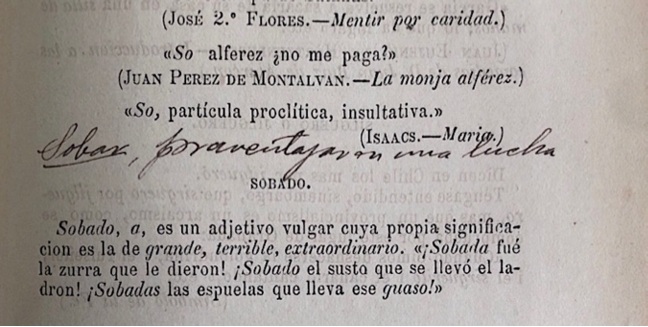 (JOSÉ 2.º FLORES.—Mentir por caridad.)
«So alferez ¿no me paga?»
(JUAN PEREZ DE MONTALVAN.—La monja alférez.)
«So, partícula proclítica, insultativa.»
(ISAACS.—Maria.)
Sobar, por aventajar en una lucha
SOBADO.
Sobado, a, es un adjetivo vulgar cuya propia significa-
cion es la de grande, terrible, extraordinario. «¡Sobada fué
la zurra que le dieron! ¡Sobado el susto que se llevó el la-
dron! ¡Sobadas las espuelas que lleva ese guaso!»